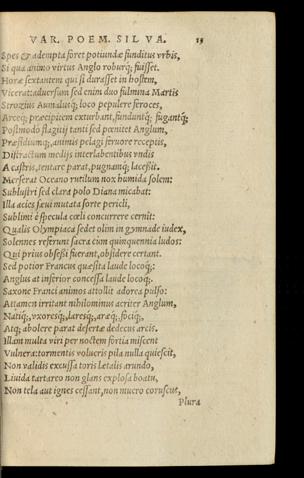 VAR. POEM. SILVA. 19
Spes & adempta foret potiundæ funditus vrbis,
Si qua animo virtus Anglo roburq; fuisset.
Horæ sextantem qui si durasset in hostem,
Vicerat: aduersum sed enim duo fulmina Martis
Strozius Aumalutq; loco pepulere feroces,
Arceq; præcipitem exturbant, funduntq; fugantq;
Postmodo flagitij tanti sed pœnitet Anglum,
Præsidiumq;, animis pelagi feruore receptis,
Distractum medijs interlabentibus vndis
A castris, tentare parat, pugnamq; lacessit.
Merserat Oceano rutilum nox humida solem:
Sublustri sed clara polo Diana micabat:
Illa acies sæui mutata sorte pericli,
Sublimi è specula cœli concurrere cernit:
Qualis Olympiaca sedet olim in gymnade iudex,
Solennes referunt sacra cùm quinquennia ludos:
Qui prius obsessi fuerant, obsidere certant.
Sed potior Francus quæsita laude locoq;:
Anglus at inferior concessa laude locoq;.
Saxone Franci animos attollit adorea pulso:
Attamen irritant nihilominus acriter Anglum,
Natiq;, vxoresq;, laresq;, aræq;, sociq;,
Atq; abolere parat desertæ dedecus arcis.
Illam multa viri per noctem fortia miscent
Vulnera: tormentis volucris pila nulla quiescit,
Non validis excussa toris letalis arundo,
Liuida tartareo non glans explosa boatu,
Non tela aut ignes cessant, non mucro coruscus,
Plura